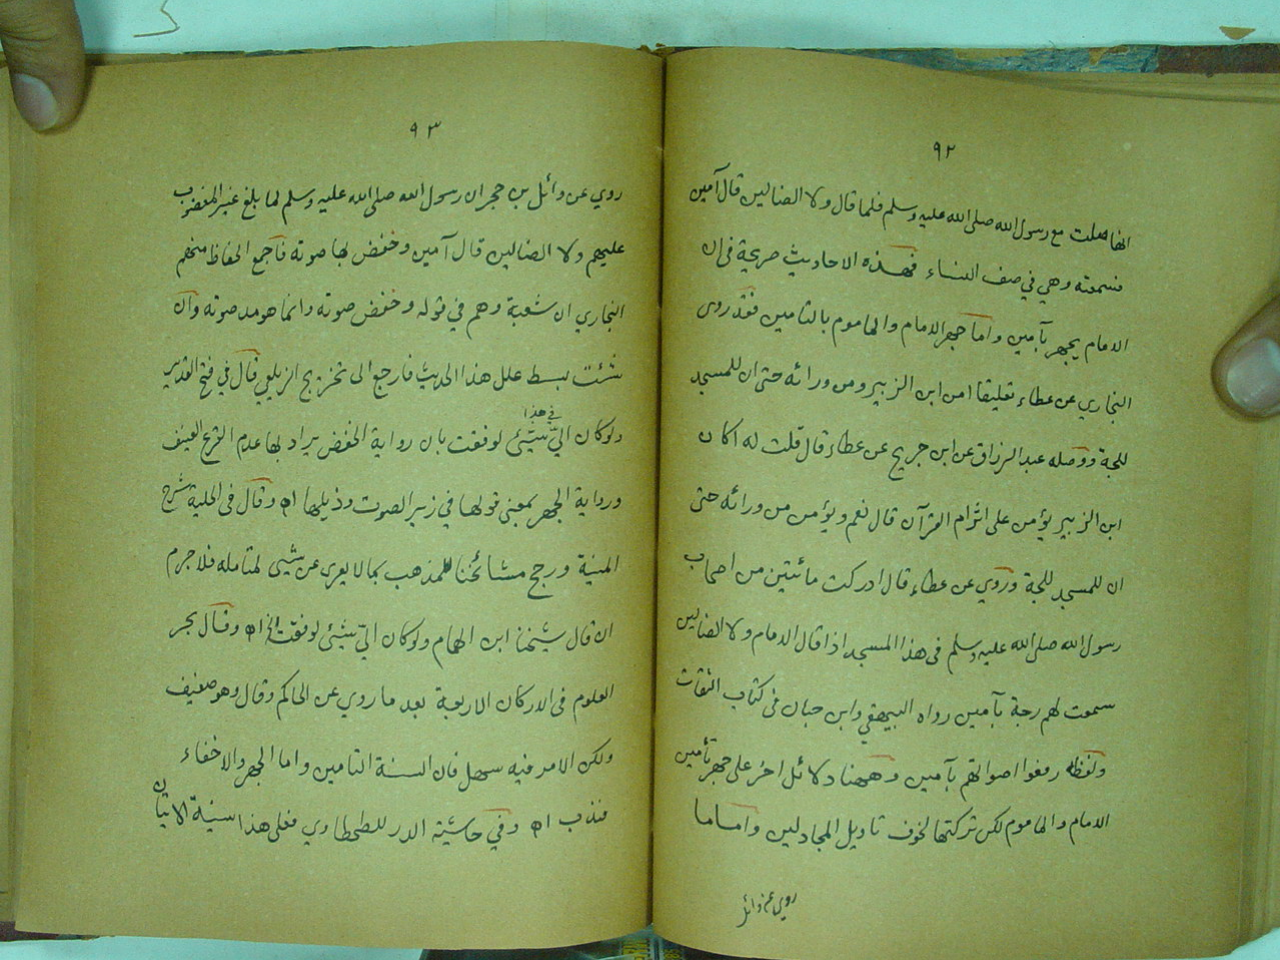 ٩٢
انها صلت مع رسول الله صلى الله عليه وسلم فلما قال ولا الضالين قال آمين
فسمعته وهي في صف النساء فهذه الاحاديث صريحة في ان
الامام يجهر بآمين واما جهر الامام والماموم بالتامين فقد روى
البخاري عن عطاء تعليقا امن ابن الزبير ومن ورائه حتى ان للمسجد
للجة ووصله عبد الرزاق عن ابن جريج عن عطاء قال قلت له اكان
ابن الزبير يؤمن على اثر ام القرآن قال نعم ويؤمن من ورائه حتى
ان للمسجد للجة وروي عن عطاء قال ادركت مائتين من اصحاب
رسول الله صلى الله عليه وسلم في هذا المسجد اذا قال الامام ولا الضالين
سمعت لهم رجة بآمين رواه البيهقي وابن حبان في كتاب الثقات
ولفظه رفعوا اصواتهم بآمين وههنا دلائل اخر على جهر تأمين
الامام والماموم لكن تركتها لخوف تاويل المجادلين واما ما
روي عن وائل
٩٣
روي عن وائل بن حجر ان رسول الله صلى الله عليه وسلم لما بلغ غير المغضوب
عليهم ولا الضالين قال آمين وخفض بها صوته فاجمع الحفاظ منهم
البخاري ان شعبة وهم في قوله وخفض صوته وانما هو مد صوته وان
شئت بسط علل هذا الحديث فارجع الى تخريج الزيلعي قال في فتح القدير
ولو كان اليّ في هذا شيئ لوفقت بان رواية الخفض يراد بها عدم القرع العنيف
ورواية الجهر بمعنى قولها في زير الصوت وذيلها اه وقال في الحلية شرح
المنية ورجح مشائخنا للمذهب بما لا يعرى عن شيئ لمتامله فلا جرم
ان قال شيخنا ابن الهمام ولو كان اليّ شيئ لوفقت الخ اه وقال بحر
العلوم في الاركان الاربعة بعد ما روي عن الحاكم وقال وهو ضعيف
ولكن الامر فيه سهل فان السنة التامين واما الجهر والاخفاء
فندب اه وفي حاشية الدر للطحطاوي فعلى هذا سنية الاتيان